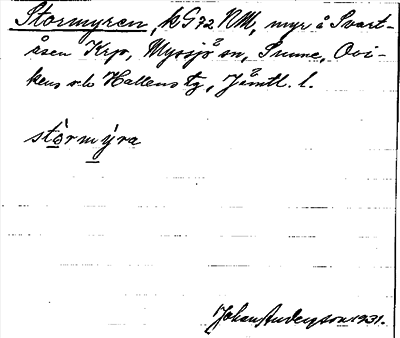 Stormyren, k G 72 NM, myr å Svart-
åsen Krp, Myssjö sn, Sunne, Ovi-
kens o. Hallens tg, Jämtl. l.
stòrmýra
Johan Anderson 1931.